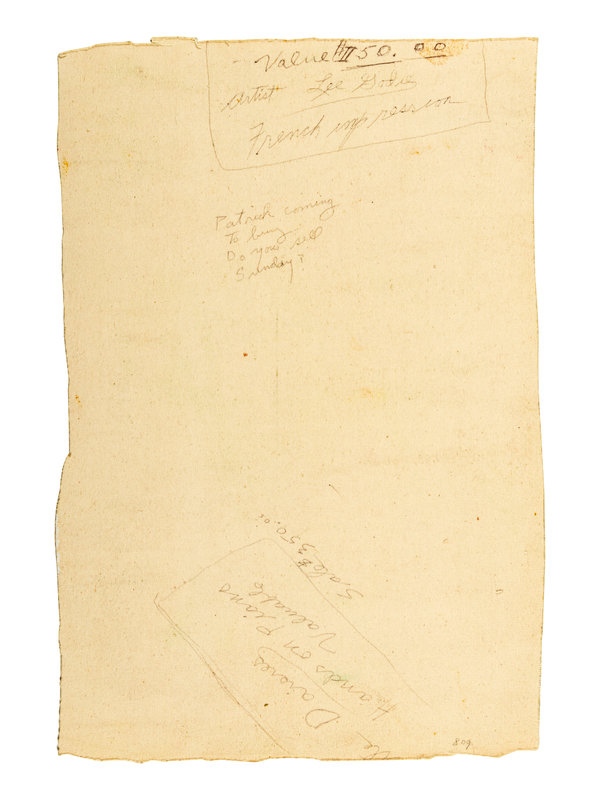 Value $150.00
Artist Lee Godie
French impression
Patrick coming
To buy
Do you sell
Sunday?
Sale $350.00
Valuable
Hands on Piano
809